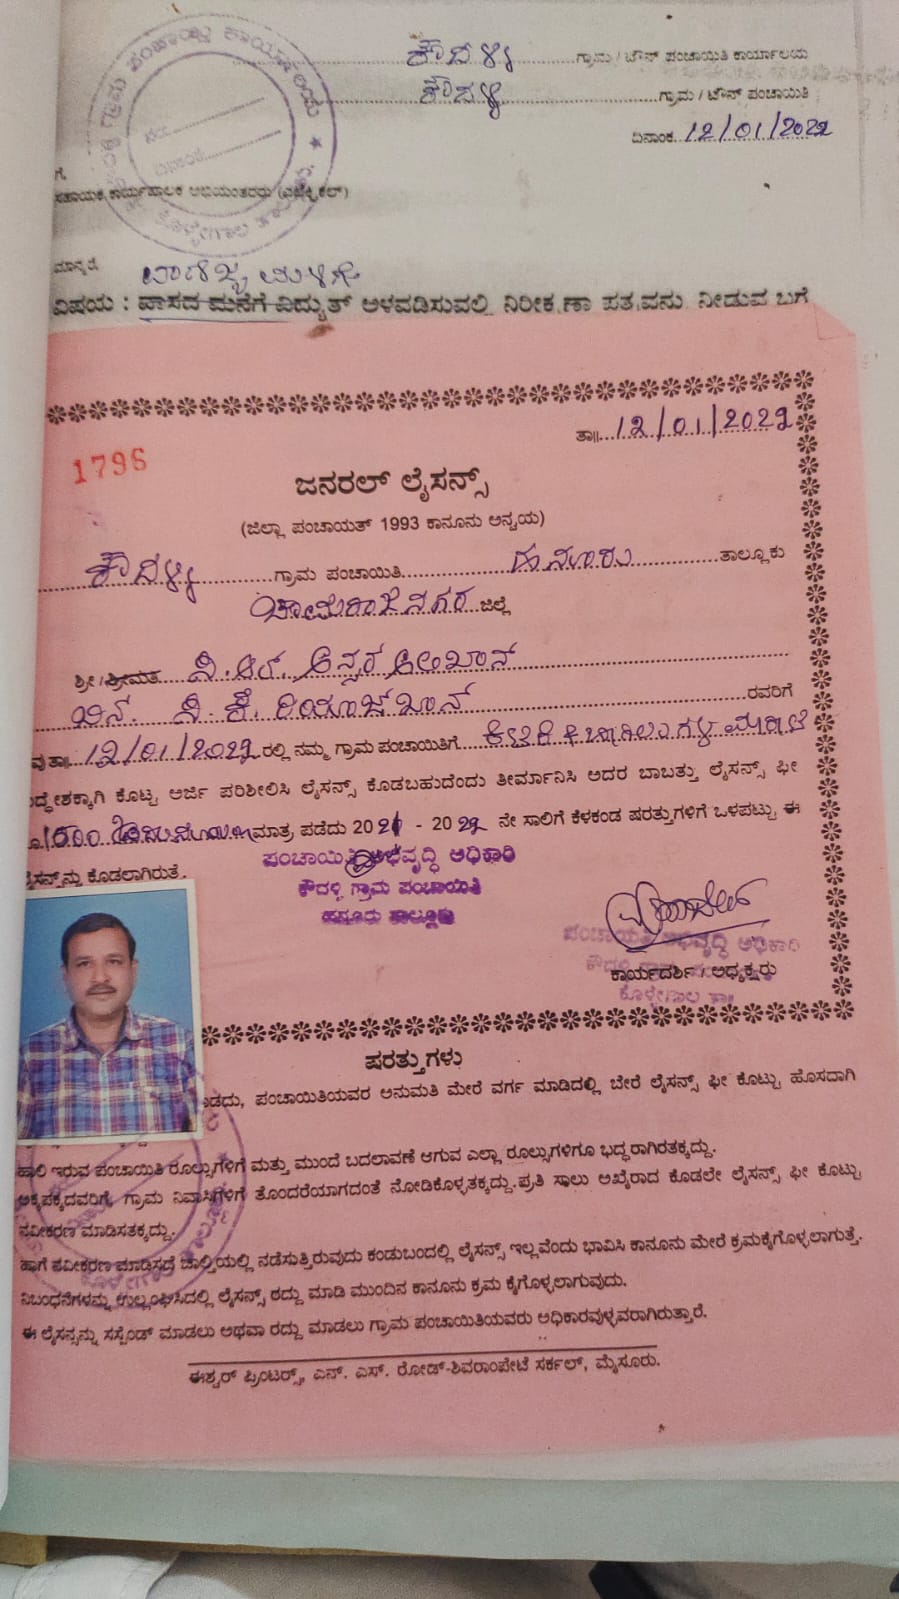 ಕೌದಳ್ಳಿ ಗ್ರಾಮ / ಟೌನ್ ಪಂಚಾಯಿತಿ ಕಾರ್ಯಾಲಯ
ಕೌದಳ್ಳಿ ಗ್ರಾಮ / ಟೌನ್ ಪಂಚಾಯಿತಿ
ದಿನಾಂಕ 12/01/2022
ಗೆ,
ಸಹಾಯಕ ಕಾರ್ಯಪಾಲಕ ಅಭಿಯಂತರರು (ಎಲೆಕ್ಟ್ರಿಕಲ್)
ಮಾನ್ಯರೆ,
ವಾಣಿಜ್ಯ ಮಳಿಗೆ
ವಿಷಯ : ವಾಸದ ಮನೆಗೆ ವಿದ್ಯುತ್ ಅಳವಡಿಸುವಲ್ಲಿ ನಿರೀಕ್ಷಣಾ ಪತ್ರವನ್ನು ನೀಡುವ ಬಗೆ
ತಾ॥ 12/01/2022
1796
ಜನರಲ್ ಲೈಸನ್ಸ್
(ಜಿಲ್ಲಾ ಪಂಚಾಯತ್ 1993 ಕಾನೂನು ಅನ್ವಯ)
ಕೌದಳ್ಳಿ ಗ್ರಾಮ ಪಂಚಾಯಿತಿ ಹನೂರು ತಾಲ್ಲೂಕು
ಚಾಮರಾಜನಗರ ಜಿಲ್ಲೆ
ಶ್ರೀ / ಶ್ರೀಮತಿ
ಬಿನ್ ರವರಿಗೆ
ತಾ॥ 12/01/2022 ರಲ್ಲಿ ನಮ್ಮ ಗ್ರಾಮ ಪಂಚಾಯಿತಿಗೆ
ಉದ್ಧೇಶಕ್ಕಾಗಿ ಕೊಟ್ಟ ಅರ್ಜಿ ಪರಿಶೀಲಿಸಿ ಲೈಸನ್ಸ್ ಕೊಡಬಹುದೆಂದು ತೀರ್ಮಾನಿಸಿ ಅದರ ಬಾಬತ್ತು ಲೈಸನ್ಸ್ ಫೀ
ಮಾತ್ರ ಪಡೆದು 2021 - 2022 ನೇ ಸಾಲಿಗೆ ಕೆಳಕಂಡ ಷರತ್ತುಗಳಿಗೆ ಒಳಪಟ್ಟು ಈ
ಲೈಸನ್ಸ್‌ನ್ನು ಕೊಡಲಾಗಿರುತ್ತೆ.
ಪಂಚಾಯಿತಿ ಅಭಿವೃದ್ಧಿ ಅಧಿಕಾರಿ
ಕೌದಳ್ಳಿ ಗ್ರಾಮ ಪಂಚಾಯಿತಿ
ಹನೂರು ತಾಲ್ಲೂಕು
ಪಂಚಾಯಿತಿ ಅಭಿವೃದ್ಧಿ ಅಧಿಕಾರಿ
ಕಾರ್ಯದರ್ಶಿ / ಅಧ್ಯಕ್ಷರು
ಕೊಳ್ಳೇಗಾಲ ತಾ॥
ಷರತ್ತುಗಳು
ಪಂಚಾಯಿತಿಯವರ ಅನುಮತಿ ಮೇರೆ ವರ್ಗ ಮಾಡಿದಲ್ಲಿ ಬೇರೆ ಲೈಸನ್ಸ್ ಫೀ ಕೊಟ್ಟು ಹೊಸದಾಗಿ
ಹಾಲಿ ಇರುವ ಪಂಚಾಯಿತಿ ರೂಲ್ಸುಗಳಿಗೆ ಮತ್ತು ಮುಂದೆ ಬದಲಾವಣೆ ಆಗುವ ಎಲ್ಲಾ ರೂಲ್ಸುಗಳಿಗೂ ಭದ್ಧರಾಗಿರತಕ್ಕದ್ದು.
ಅಕ್ಕಪಕ್ಕದವರಿಗೆ, ಗ್ರಾಮ ನಿವಾಸಿಗಳಿಗೆ ತೊಂದರೆಯಾಗದಂತೆ ನೋಡಿಕೊಳ್ಳತಕ್ಕದ್ದು. ಪ್ರತಿ ಸಾಲು ಅಖೈರಾದ ಕೊಡಲೇ ಲೈಸನ್ಸ್ ಫೀ ಕೊಟ್ಟು
ನವೀಕರಣ ಮಾಡಿಸತಕ್ಕದ್ದು.
ಹಾಗೆ ನವೀಕರಣ ಮಾಡಿಸದೆ ಚಾಲ್ತಿಯಲ್ಲಿ ನಡೆಸುತ್ತಿರುವುದು ಕಂಡುಬಂದಲ್ಲಿ ಲೈಸನ್ಸ್ ಇಲ್ಲವೆಂದು ಭಾವಿಸಿ ಕಾನೂನು ಮೇರೆ ಕ್ರಮಕೈಗೊಳ್ಳಲಾಗುತ್ತೆ.
ನಿಬಂಧನೆಗಳನ್ನು ಉಲ್ಲಂಘಿಸಿದಲ್ಲಿ ಲೈಸನ್ಸ್ ರದ್ದು ಮಾಡಿ ಮುಂದಿನ ಕಾನೂನು ಕ್ರಮ ಕೈಗೊಳ್ಳಲಾಗುವುದು.
ಈ ಲೈಸನ್ಸನ್ನು ಸಸ್ಪೆಂಡ್ ಮಾಡಲು ಅಥವಾ ರದ್ದು ಮಾಡಲು ಗ್ರಾಮ ಪಂಚಾಯಿತಿಯವರು ಅಧಿಕಾರವುಳ್ಳವರಾಗಿರುತ್ತಾರೆ.
ಈಶ್ವರ್ ಪ್ರಿಂಟರ್‍ಸ್, ಎನ್. ಎಸ್. ರೋಡ್-ಶಿವರಾಂಪೇಟೆ ಸರ್ಕಲ್, ಮೈಸೂರು.